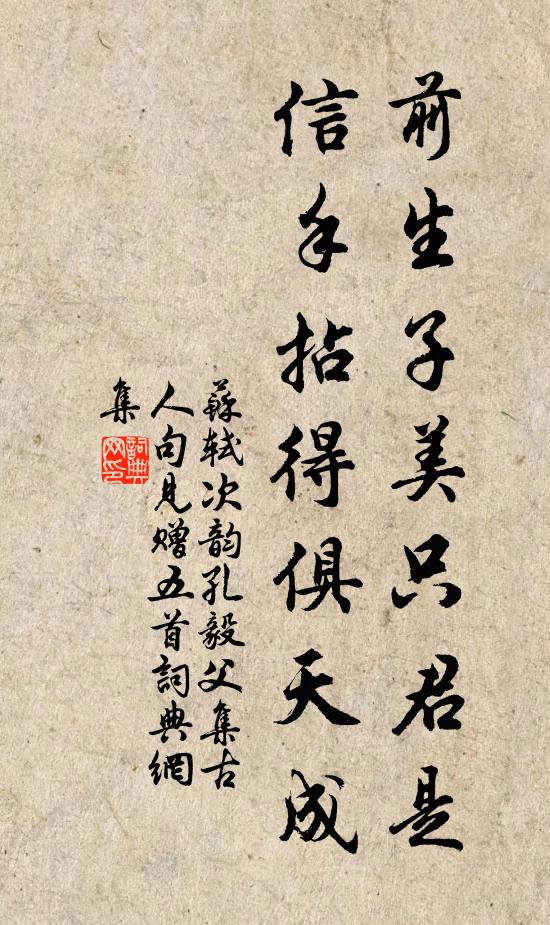 前生子美只君是
信手拈得俱天成
蘇軾次韵孔毅父集古
人句見贈五首詞典網
集
詞典
网